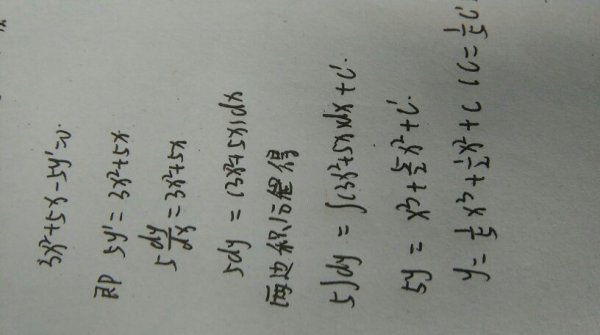 3x²+5x-5y'=0.
即 5y'=3x²+5x
5 dy/dx = 3x²+5x
5dy = (3x²+5x)dx
两边积分得
5∫dy = ∫(3x²+5x)dx + C'.
5y = x³+5/2x²+C'.
y = 1/5x³+1/2x²+C (C=1/5C'